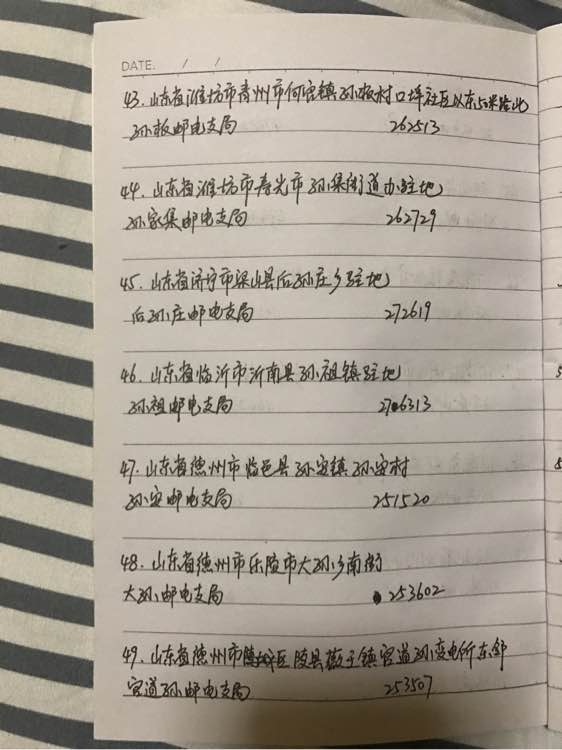 DATE. / /
43. 山东省潍坊市青州市何官镇孙板村口埠社区以东50米路北
孙板邮电支局 262513
44. 山东省潍坊市寿光市孙集街道办驻地
孙家集邮电支局 262729
45. 山东省济宁市梁山县后孙庄乡驻地
后孙庄邮电支局 272619
46. 山东省临沂市沂南县孙祖镇驻地
孙祖邮电支局 276313
47. 山东省德州市临邑县孙安镇孙安村
孙安邮电支局 251520
48. 山东省德州市乐陵市大孙乡南街
大孙邮电支局 253602
49. 山东省德州市陵城区陵县徽王镇官道孙变电所东邻
官道孙邮电支局 253507